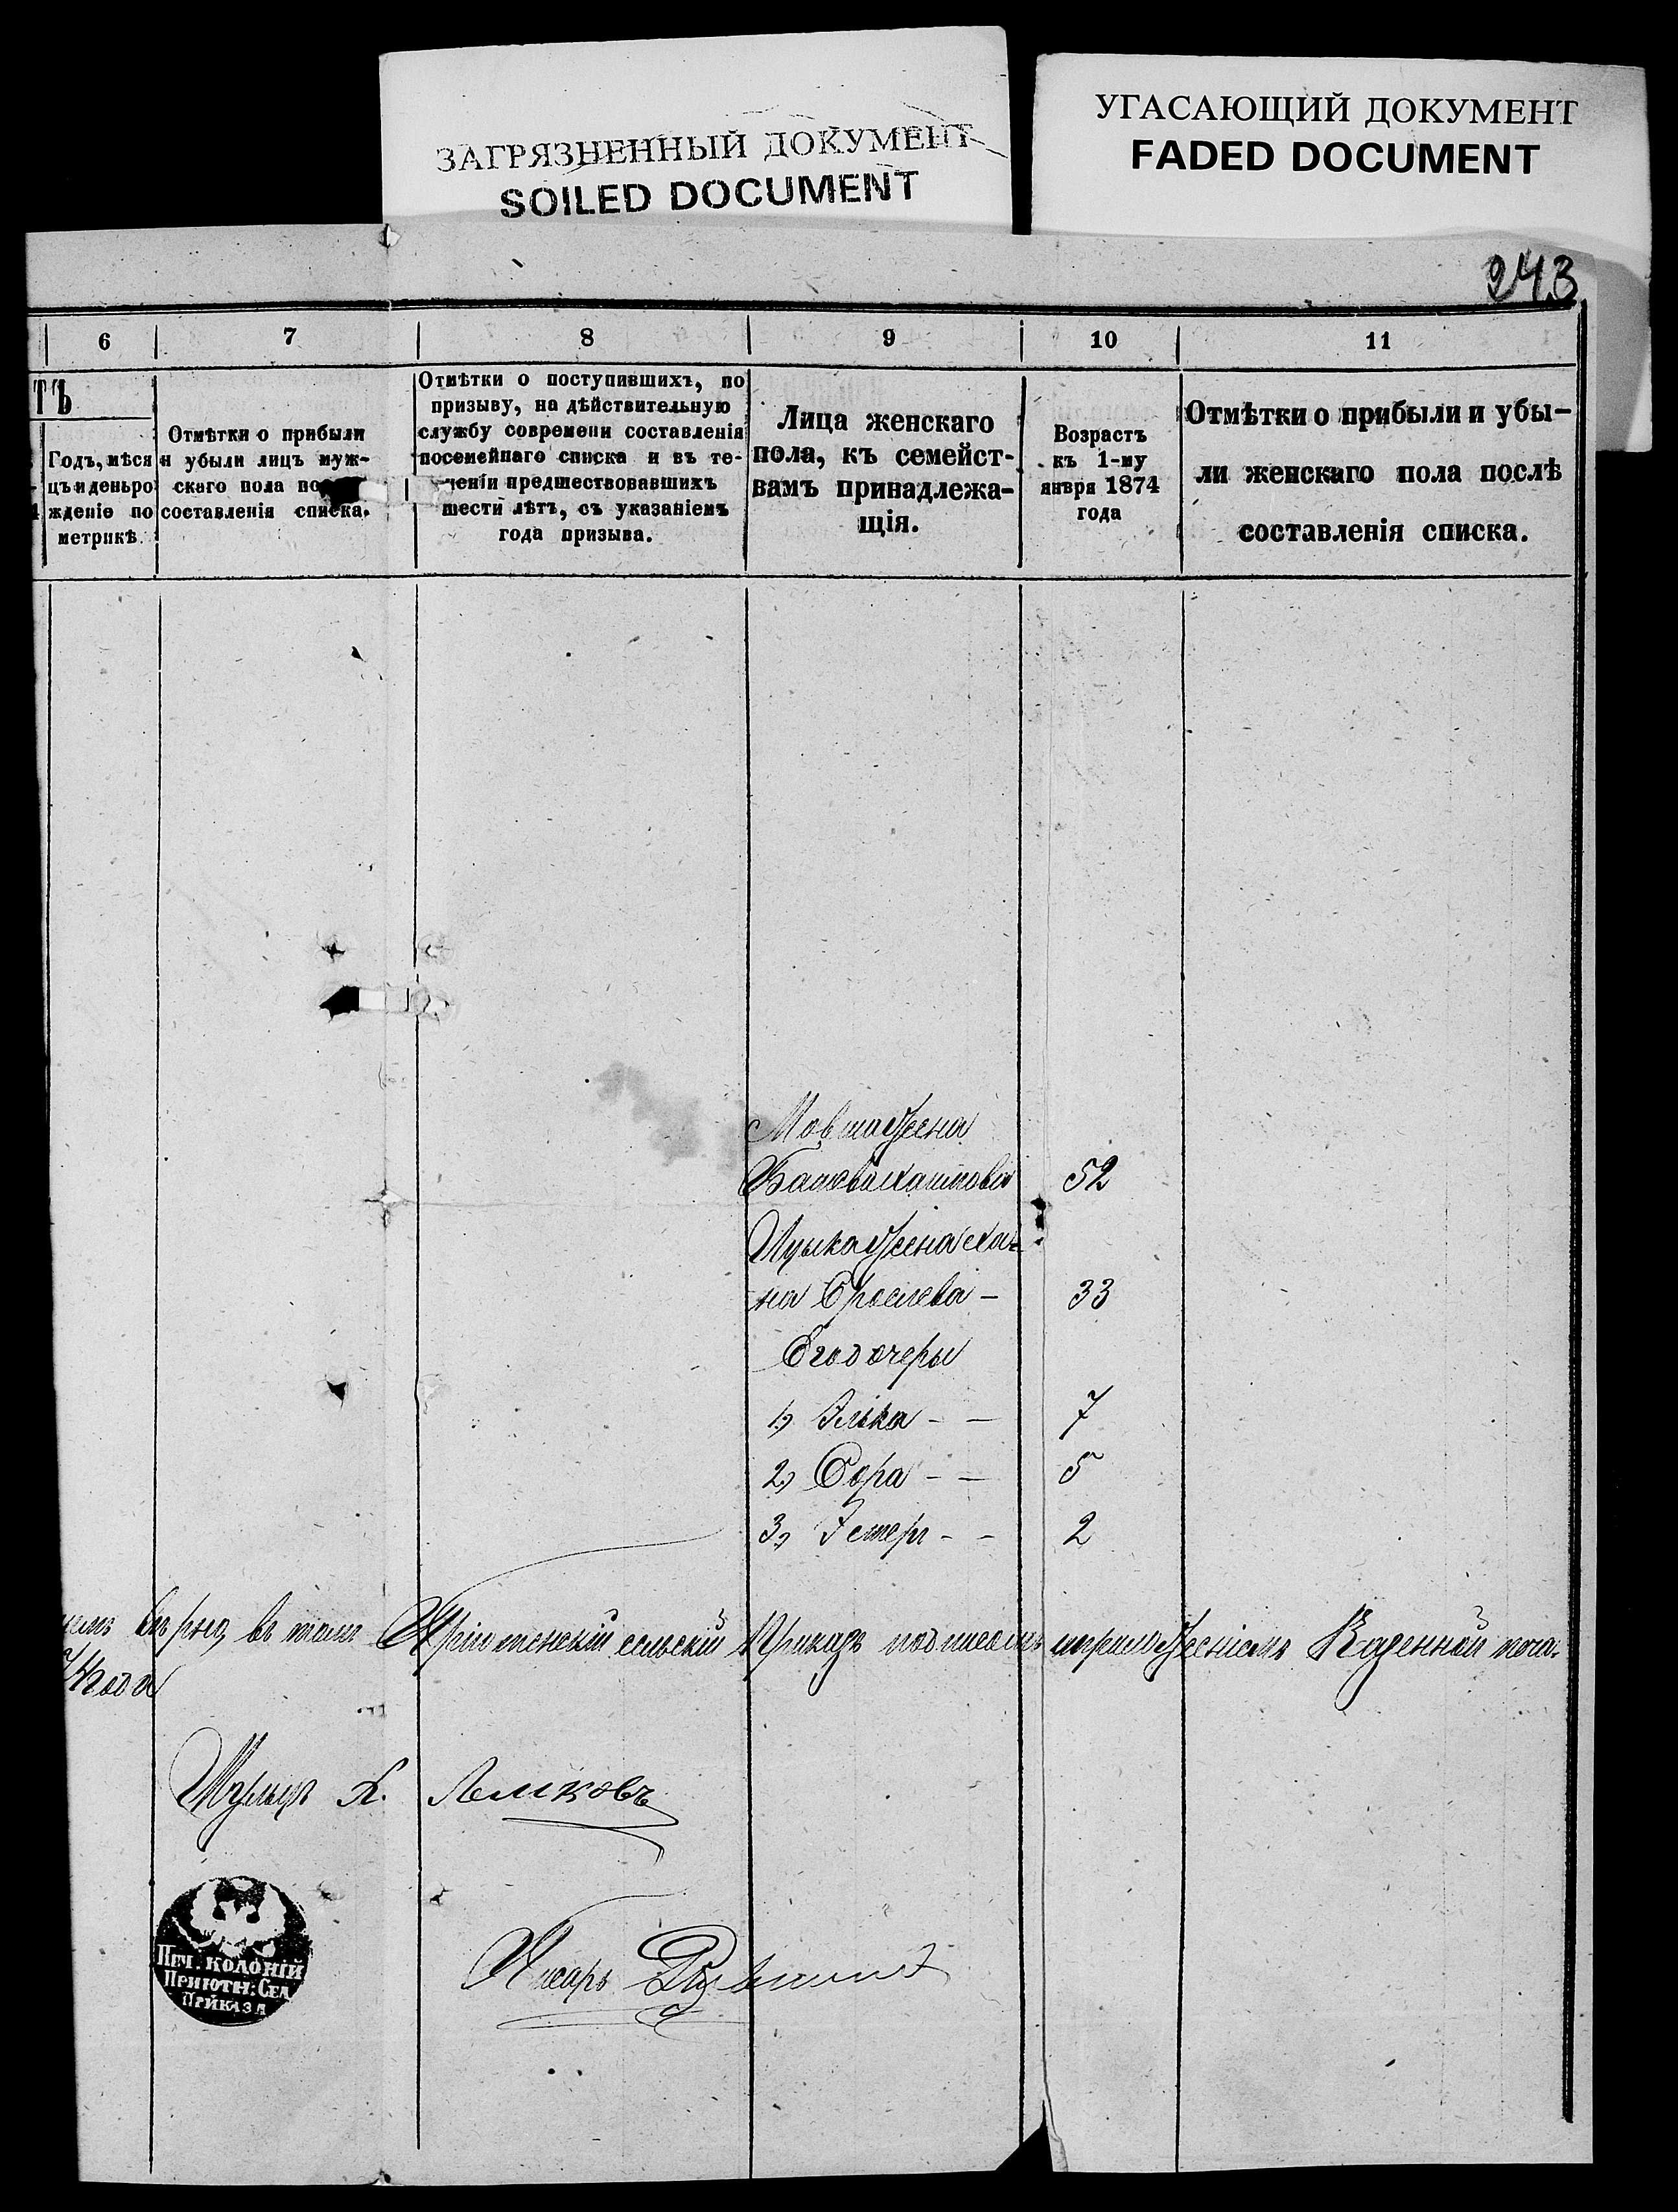 ЗАГРЯЗНЕННЫЙ ДОКУМЕНТ
SOILED DOCUMENT
УГАСАЮЩИЙ ДОКУМЕНТ
FADED DOCUMENT
243
6 7 8 9 10 11
ТЪ
Годъ, мѣся
цъ и деньро
жденіе по
метрикѣ.
Отмѣтки о прибыли
и убыли лицъ муж-
скаго пола
составленія списка.
Отмѣтки о поступившихъ, по
призыву, на дѣйствительную
службу современи составленія
посемейнаго списка и въ те-
ченіи предшествовавшихъ
шести лѣтъ, съ указаніемъ
года призыва.
Лица женскаго
пола, къ семейст-
вамъ принадлежа-
щія.
Возрастъ
къ 1-му
янвря 1874
года
Отмѣтки о прибыли и убы-
ли женскаго пола послѣ
составленія списка.
Мовша жена
52
жена Ха-
на Сроелева - 33
Его дочеры
1) Элька - - 7
2) Сора - - 5
3) Эстеръ - - 2
вѣрно, въ томъ Пріютенскій сельскій Приказъ подписомъ и приложеніемъ Казенной печа-
года
Шульцъ Х. Лемковъ
Писарь
ПЕЧ. КОЛОНІЙ
ПРИЮТН. СЕЛ
ПРИКАЗА